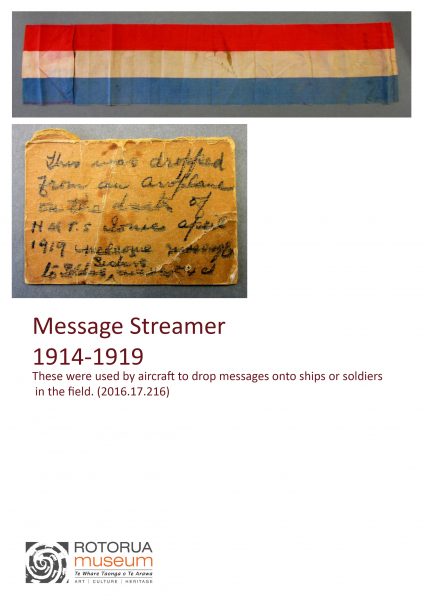 This was dropped
from an aroplane
on the deck of
H M T. S Ionic april
1919 welcome message
to Sisters
Message Streamer
1914-1919
These were used by aircraft to drop messages onto ships or soldiers
in the field. (2016.17.216)
ROTORUA
museum
Te Whare Taonga o Te Arawa
ART | CULTURE | HERITAGE